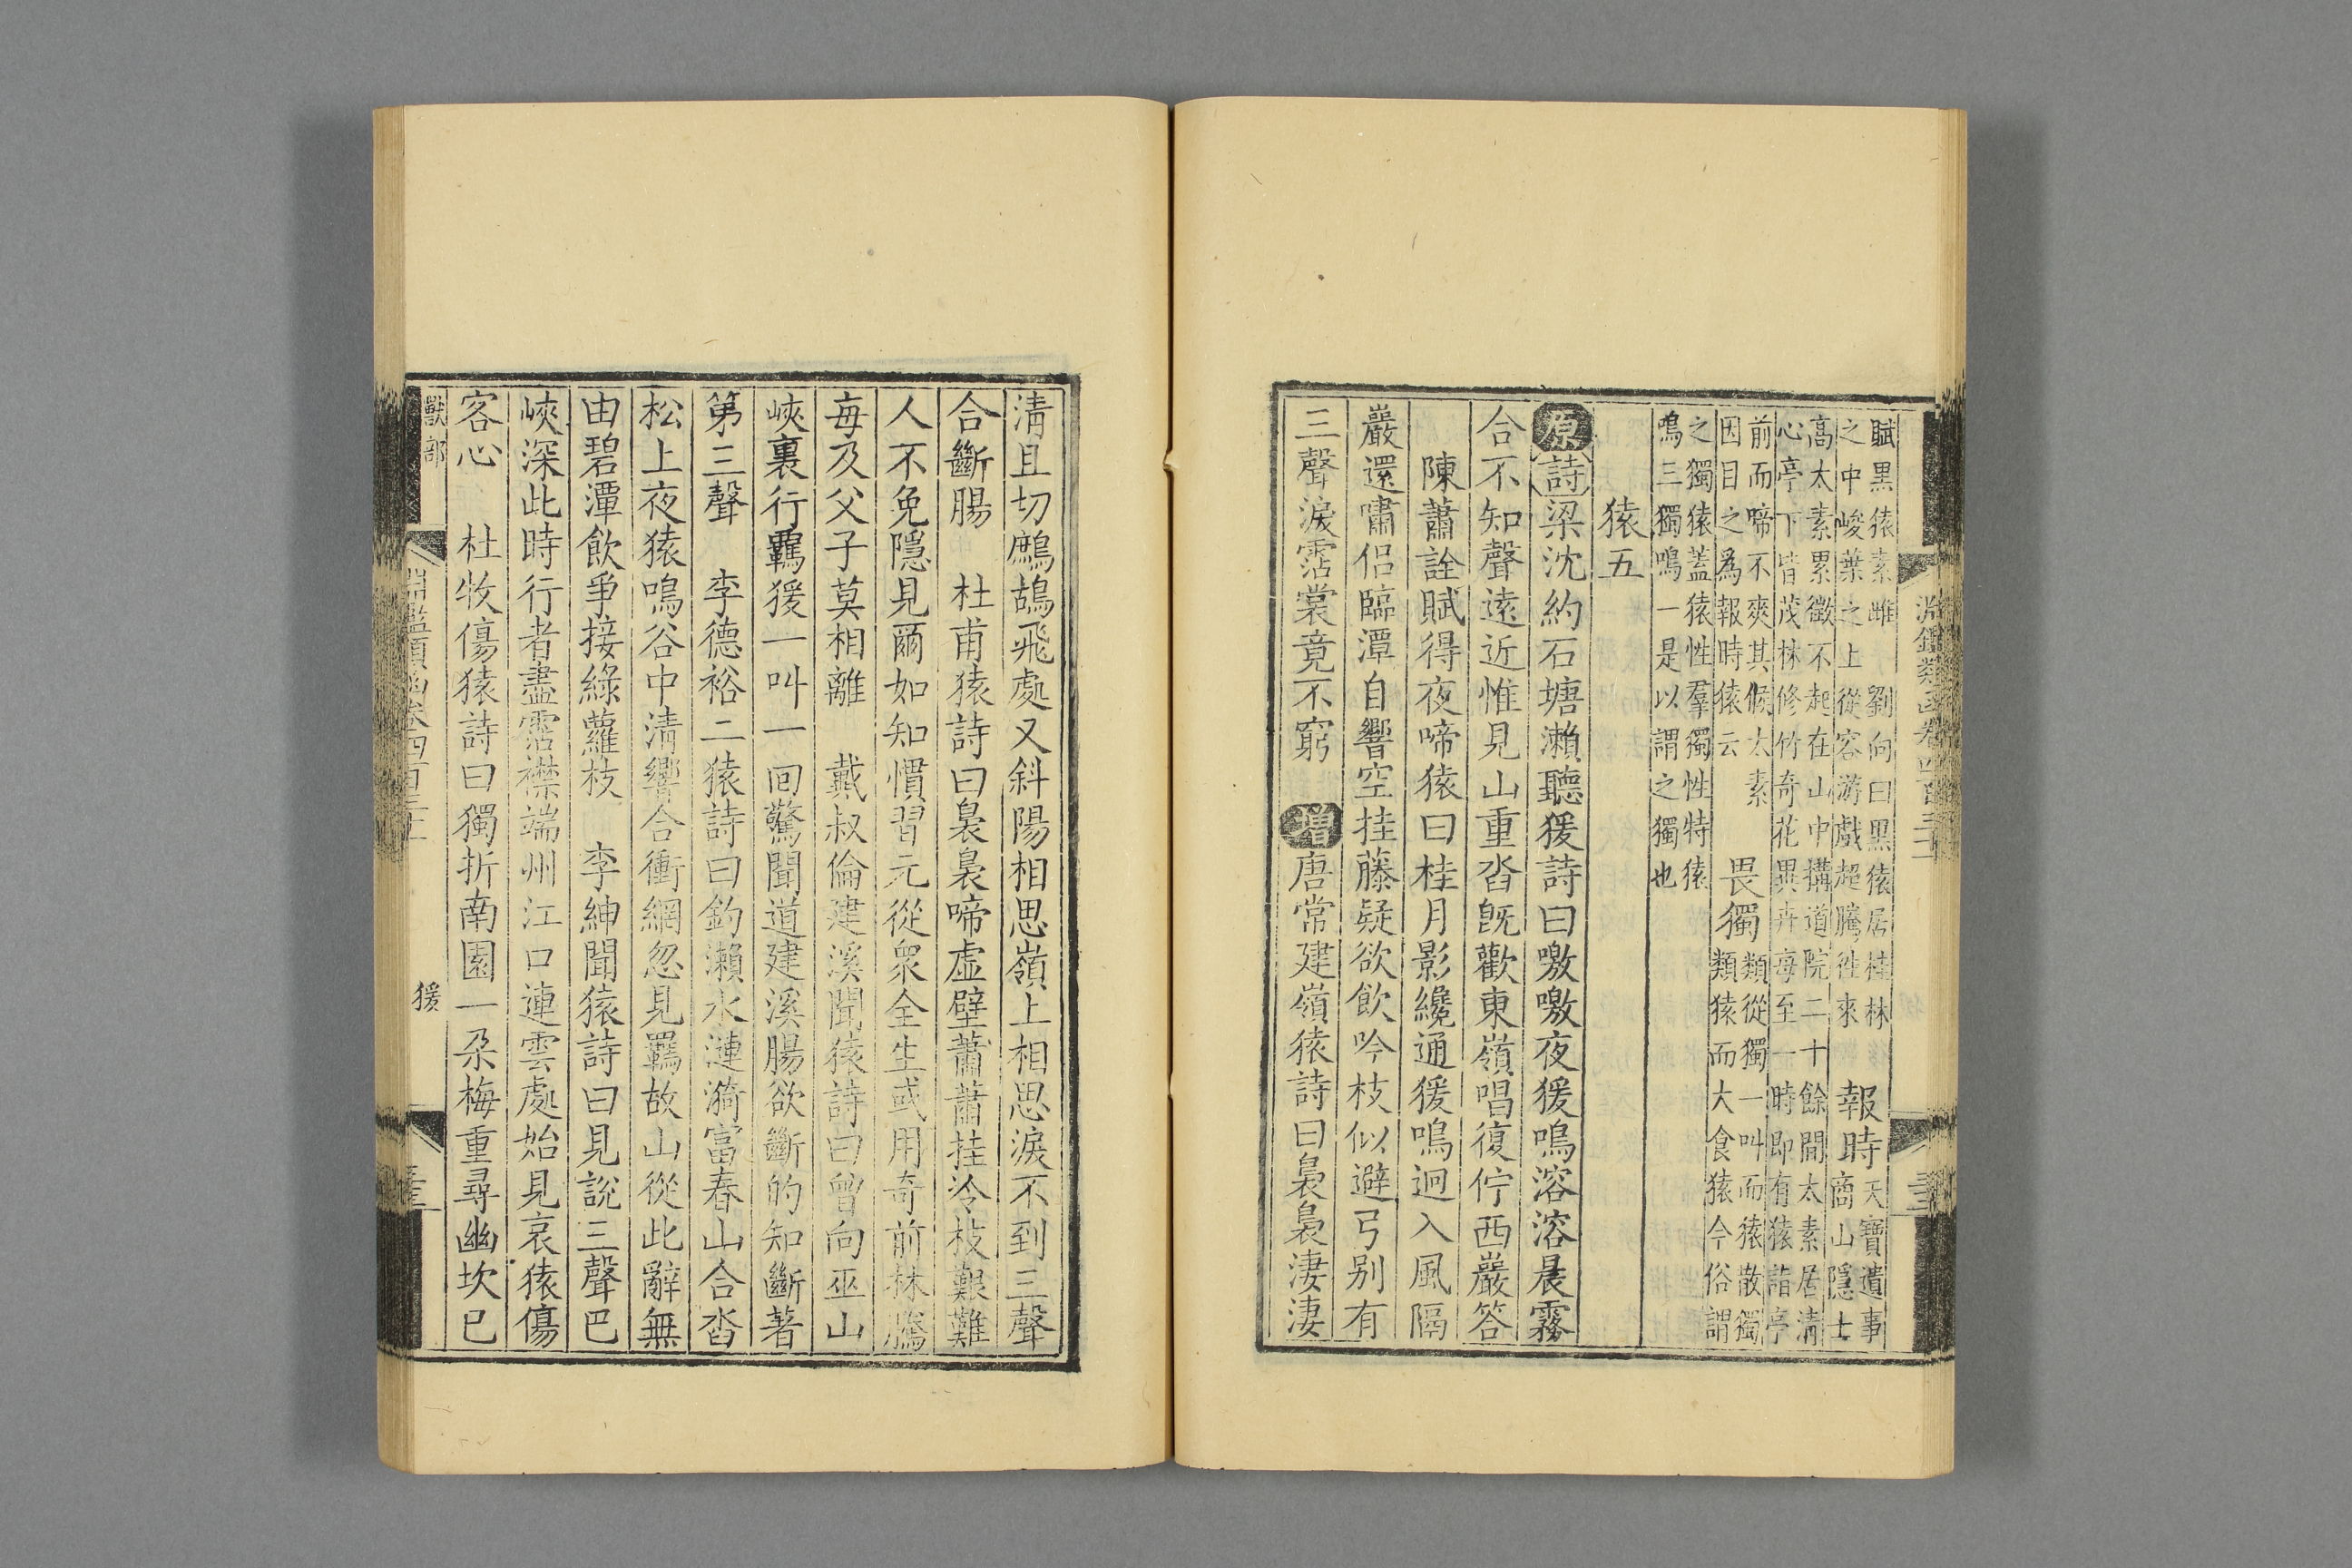 賦黑猿素雌　劉向曰黑猿居桂林
之中峻葉之上從容游戲超騰徃來
報時
天寶遺事
商山隱士
高太素累徵不起在山中搆道院二十餘間太素居清
心亭下皆茂林修竹奇花異卉每至一時即有猿詣亭
前而啼不爽其候太素
因目之爲報時猿云
畏獨
類從獨一叫而猿散獨
類猿而大食猿今俗謂
之獨猿蓋猿性羣獨性特猿
鳴三獨鳴一是以謂之獨也
猿五
原詩梁沈約石塘瀨聽猨詩曰噭噭夜猨鳴溶溶晨霧
合不知聲逺近惟見山重沓旣歡東嶺唱復佇西巖答
陳蕭詮賦得夜啼猿曰桂月影纔通猨鳴迥入風隔
巖還嘯侣臨潭自響空挂藤疑欲飲吟枝似避弓别有
三聲淚霑裳竟不窮　增唐常建嶺猿詩曰裊裊淒淒
淸且切鷓鴣飛處又斜陽相思嶺上相思淚不到三聲
合斷腸　杜甫猿詩曰裊裊啼虛壁蕭蕭挂冷枝艱難
人不免隱見爾如知慣習元從衆全生或用奇前林騰
每及父子莫相離　戴叔倫建溪聞猿詩曰曾向巫山
峽裏行羈猨一叫一回驚聞道建溪腸欲斷的知斷著
第三聲　李德裕二猿詩曰釣瀨水漣漪富春山合沓
松上夜猿鳴谷中淸響合衝網忽見羈故山從此辭無
由碧潭飲爭接綠蘿枝　李紳聞猿詩曰見說三聲巴
峽深此時行者盡霑襟端州江口連雲處始見哀猿傷
客心　杜牧傷猿詩曰獨折南園一朶梅重尋幽坎已
獸部
淵鑑類函卷四百三十
猨